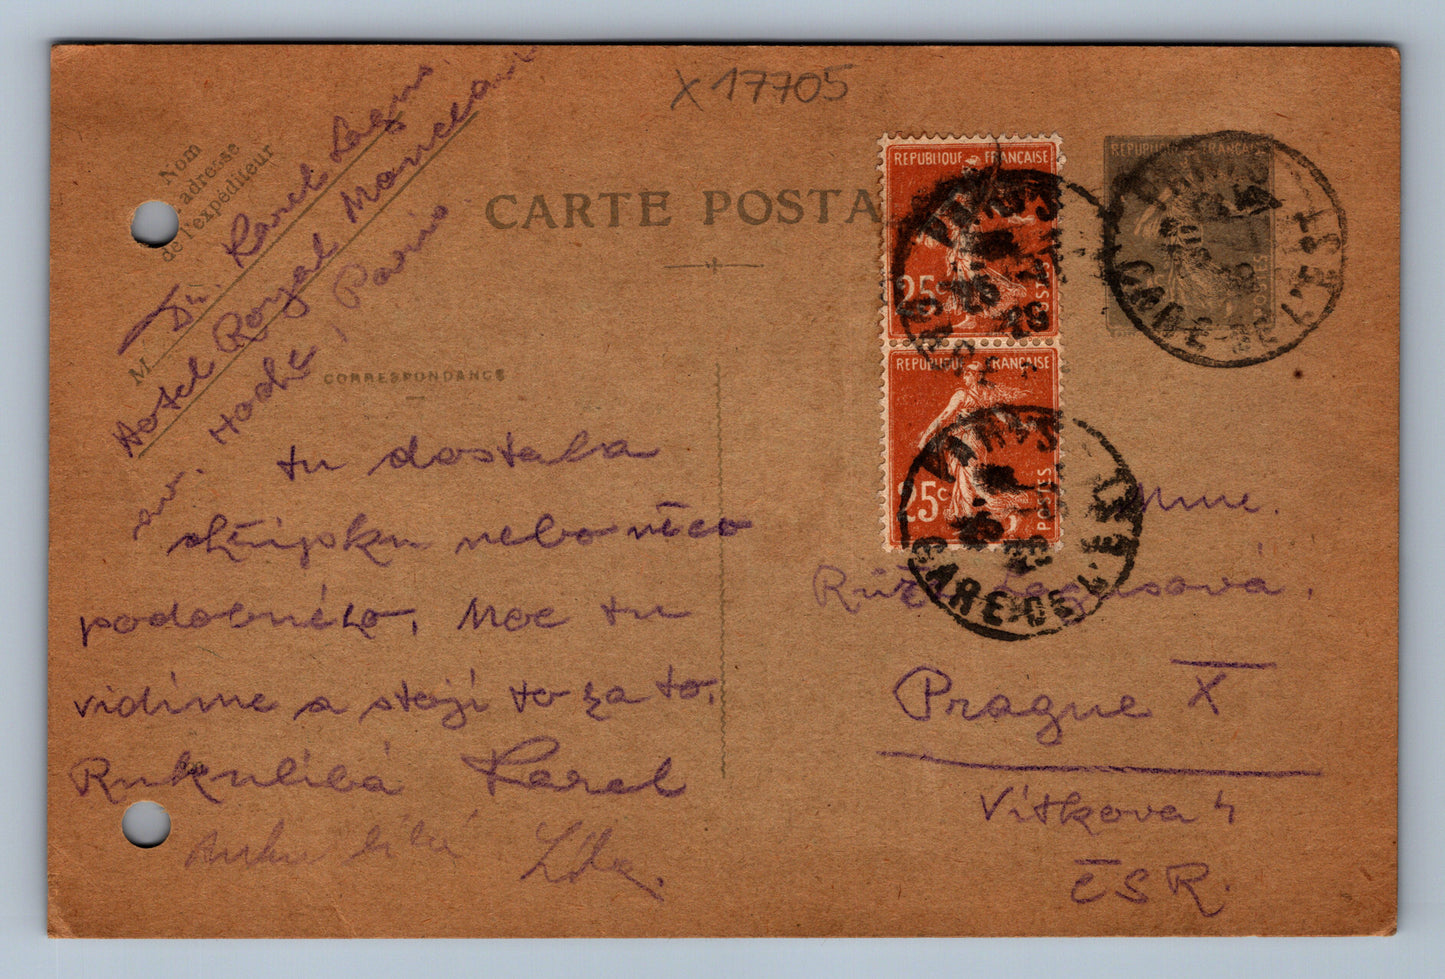 X 17705
Nom
adresse
de l'expéditeur
M
Dr. Karel
Hotel Royal
Paris
CARTE POSTA
CORRESPONDANCE
REPUBLIQUE FRANÇAISE
25c
POSTES
REPUBLIQUE FRANÇAISE
25c
POSTES
REPUBLIQUE FRANÇAISE
POSTES
PARIS
GARE DE L'EST
PARIS
GARE DE L'EST
PARIS
GARE DE L'EST
tu dostala
chřipku nebo něco
podobného. Moc tu
vidíme a stojí to za to.
Rukulíbá Karel
Mme.
Prague X
Vítkova 4
ČSR.